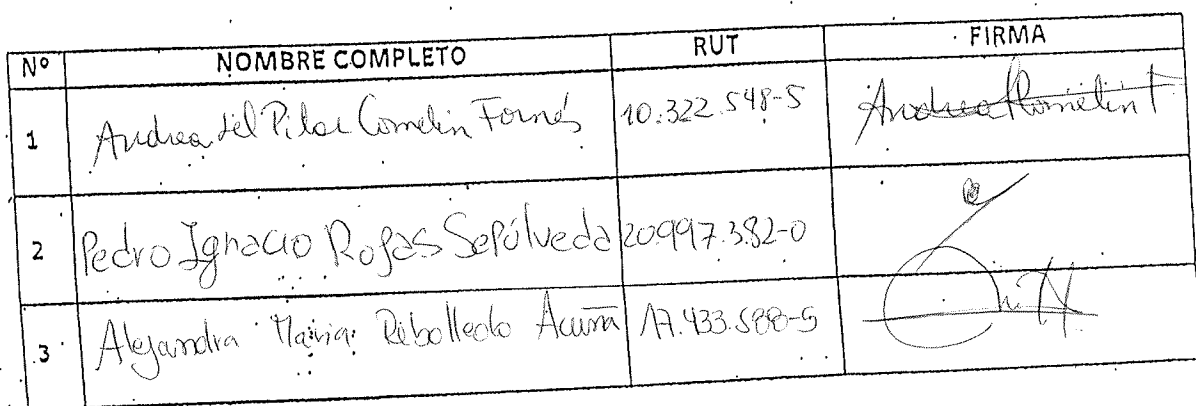 Nº NOMBRE COMPLETO RUT FIRMA
1 Andrea del Pilar Comelin Fornés 10.322.548-5 Andrea Comelin F
2 Pedro Ignacio Rojas Sepúlveda 20.997.382-0
3 Alejandra María Rebolledo Acuña 17.433.588-5